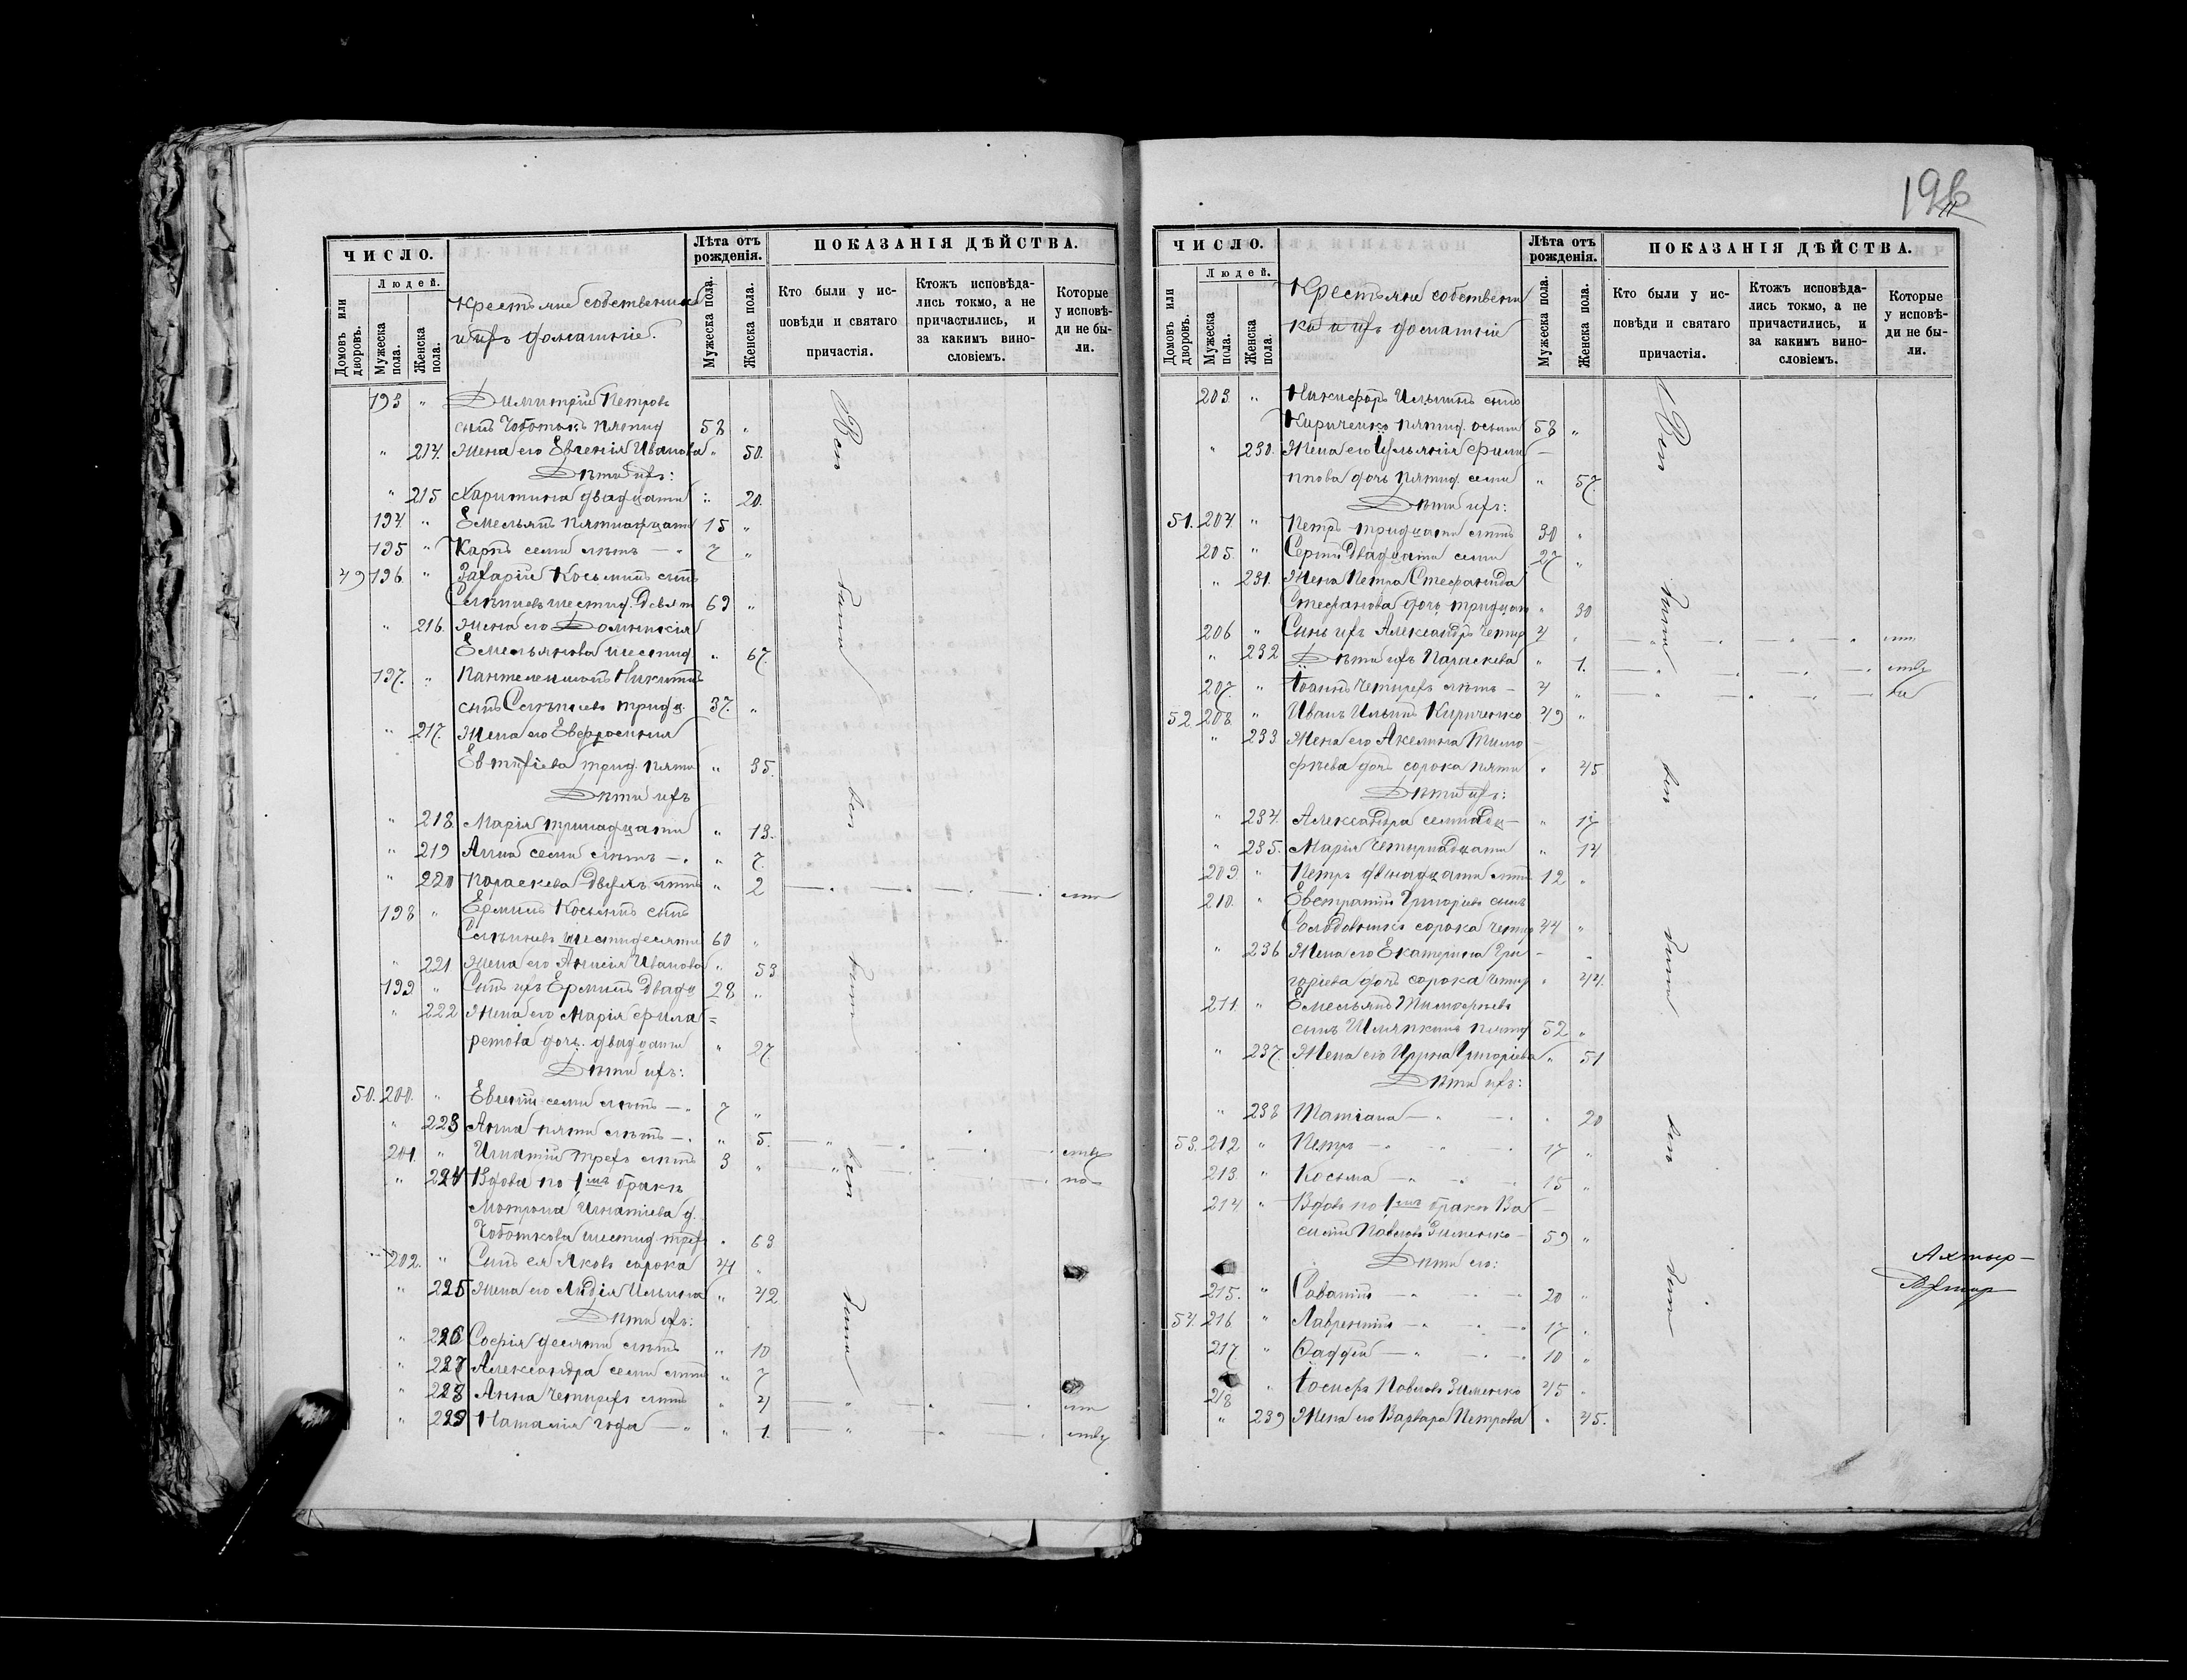 196
ЧИСЛО.
Людей.
Домовъ или дворовъ.
Мужеска пола.
Женска пола.
Крестьяне собственики
и ихъ домашніе.
Лѣта отъ рожденія.
Мужеска пола.
Женска пола.
ПОКАЗАНІЯ ДѢЙСТВА.
Кто были у исповѣди и святаго причастія.
Ктожъ исповѣдались токмо, а не причастились, и за какимъ винословіемъ.
Которые у исповѣди не были.
193 " Димитрій Петровъ
сынъ Чоботокъ пятид 58 "
" 214. Жена его Евгенія Иванова " 50.
Дѣти ихъ:
" 215 Харитина двадцати 20.
194. " Емельянъ пятнадцати 15 "
195 " Карпъ семи лѣтъ 7 "
49 196. " Захарій Косьминъ сынъ
шестид. Девят 69 "
" 216. Жена его Домникія
Емельянова шестид " 67.
197. " Пантелеимонъ Никитинъ
сынъ тридц. 37. "
" 217. Жена его Евфросинія
Евтихіева трид. пяти " 35.
Дѣти ихъ
" 218. Марія тринадцати " 13.
" 219 Анна семи лѣтъ " 7.
" 220 Параскева Двухъ лѣтъ " 2
198 " Ермилъ Косьминъ сынъ
шестидесяти 60 "
" 221 Жена его Анисія Иванова " 53
199. " Сынъ ихъ Ермилъ Двадц 28 "
" 222 Жена его Марія Фила=
ретова дочь двадцати " 27
Дѣти ихъ:
50. 200. " Евгеній семи лѣтъ 7 "
" 223 Анна пяти лѣтъ " 5.
201. " Игнатій трехъ лѣтъ 3 "
" 224 Вдова по 1мъ бракѣ
Мотрона Игнатіева д.
Чоботкова шестид. трех " 63
202. " Сынъ ея Яковъ сорока 41 "
" 225 Жена его Лидія Ильина " 42
Дѣти ихъ:
" 226 Софія десяти лѣтъ " 10
" 227 Александра семи лѣтъ " 7
" 228 Анна Четырехъ лѣтъ " 4
" 229 Наталія года " 1.
Всѣ
были
всѣ
были
всѣ
были
ЧИСЛО.
Людей.
Домовъ или дворовъ.
Мужеска пола.
Женска пола.
Крестьяне собствени
ки и ихъ домашніе
Лѣта отъ рожденія.
Мужеска пола.
Женска пола.
ПОКАЗАНІЯ ДѢЙСТВА.
Кто были у исповѣди и святаго причастія.
Ктожъ исповѣдались токмо, а не причастились, и за какимъ винословіемъ.
Которые у исповѣди не были.
203. " Никифоръ Ильинъ сынъ
Кириченко пятид. осьми 58 "
" 230. Жена его Ульянія Фили—
ппова дочь пятид. семи " 57.
Дѣти ихъ:
51. 204 " Петръ тридцати лѣтъ 30 "
205. " Сергій Двадцати семи 27 "
" 231. Жена Петра Стефанида
Стефанова дочь тридцати " 30
206 " Сынъ ихъ Александръ Четыр 4 "
" 232 Дѣти ихъ Параскева " 1.
207. " Іоаннъ Четырехъ лѣтъ 4 "
52. 208. " Иванъ Ильинъ Кириченко 49 "
" 233 Жена его Акелина Тимо—
фѣева дочь сорока пяти " 45
Дѣти ихъ:
" 234. Александра семнадц— " 17
" 235. Марія Четырнадцати " 14
209. " Петръ двѣнадцати лѣтъ 12 "
210. " Евстратій Григорьевъ сынъ
сорока Четыр 44 "
" 236 Жена его Екатерина Гри—
горіева дочь сорока Четыр " 44.
211. " Емельянъ Тимофѣевъ
сынъ пятид 52 "
" 237. Жена его Ирина Григоріева " 51
Дѣти ихъ:
" 238 Татіана " 20
53. 212 " Петръ 17 "
213. " Косьма 15 "
214 " Вдовъ по 1мъ бракѣ Ва—
силій Павловъ Зименко 59 "
Дѣти его:
215. " Саватій 20 "
54. 216 " Лаврентій 17 "
217. " Фаддей 10 "
218 " Іосифъ Павловъ Зименко 45 "
" 239 Жена его Варвара Петрова " 45.
Всѣ
были
всѣ
были
всѣ
были
Ахтыр—